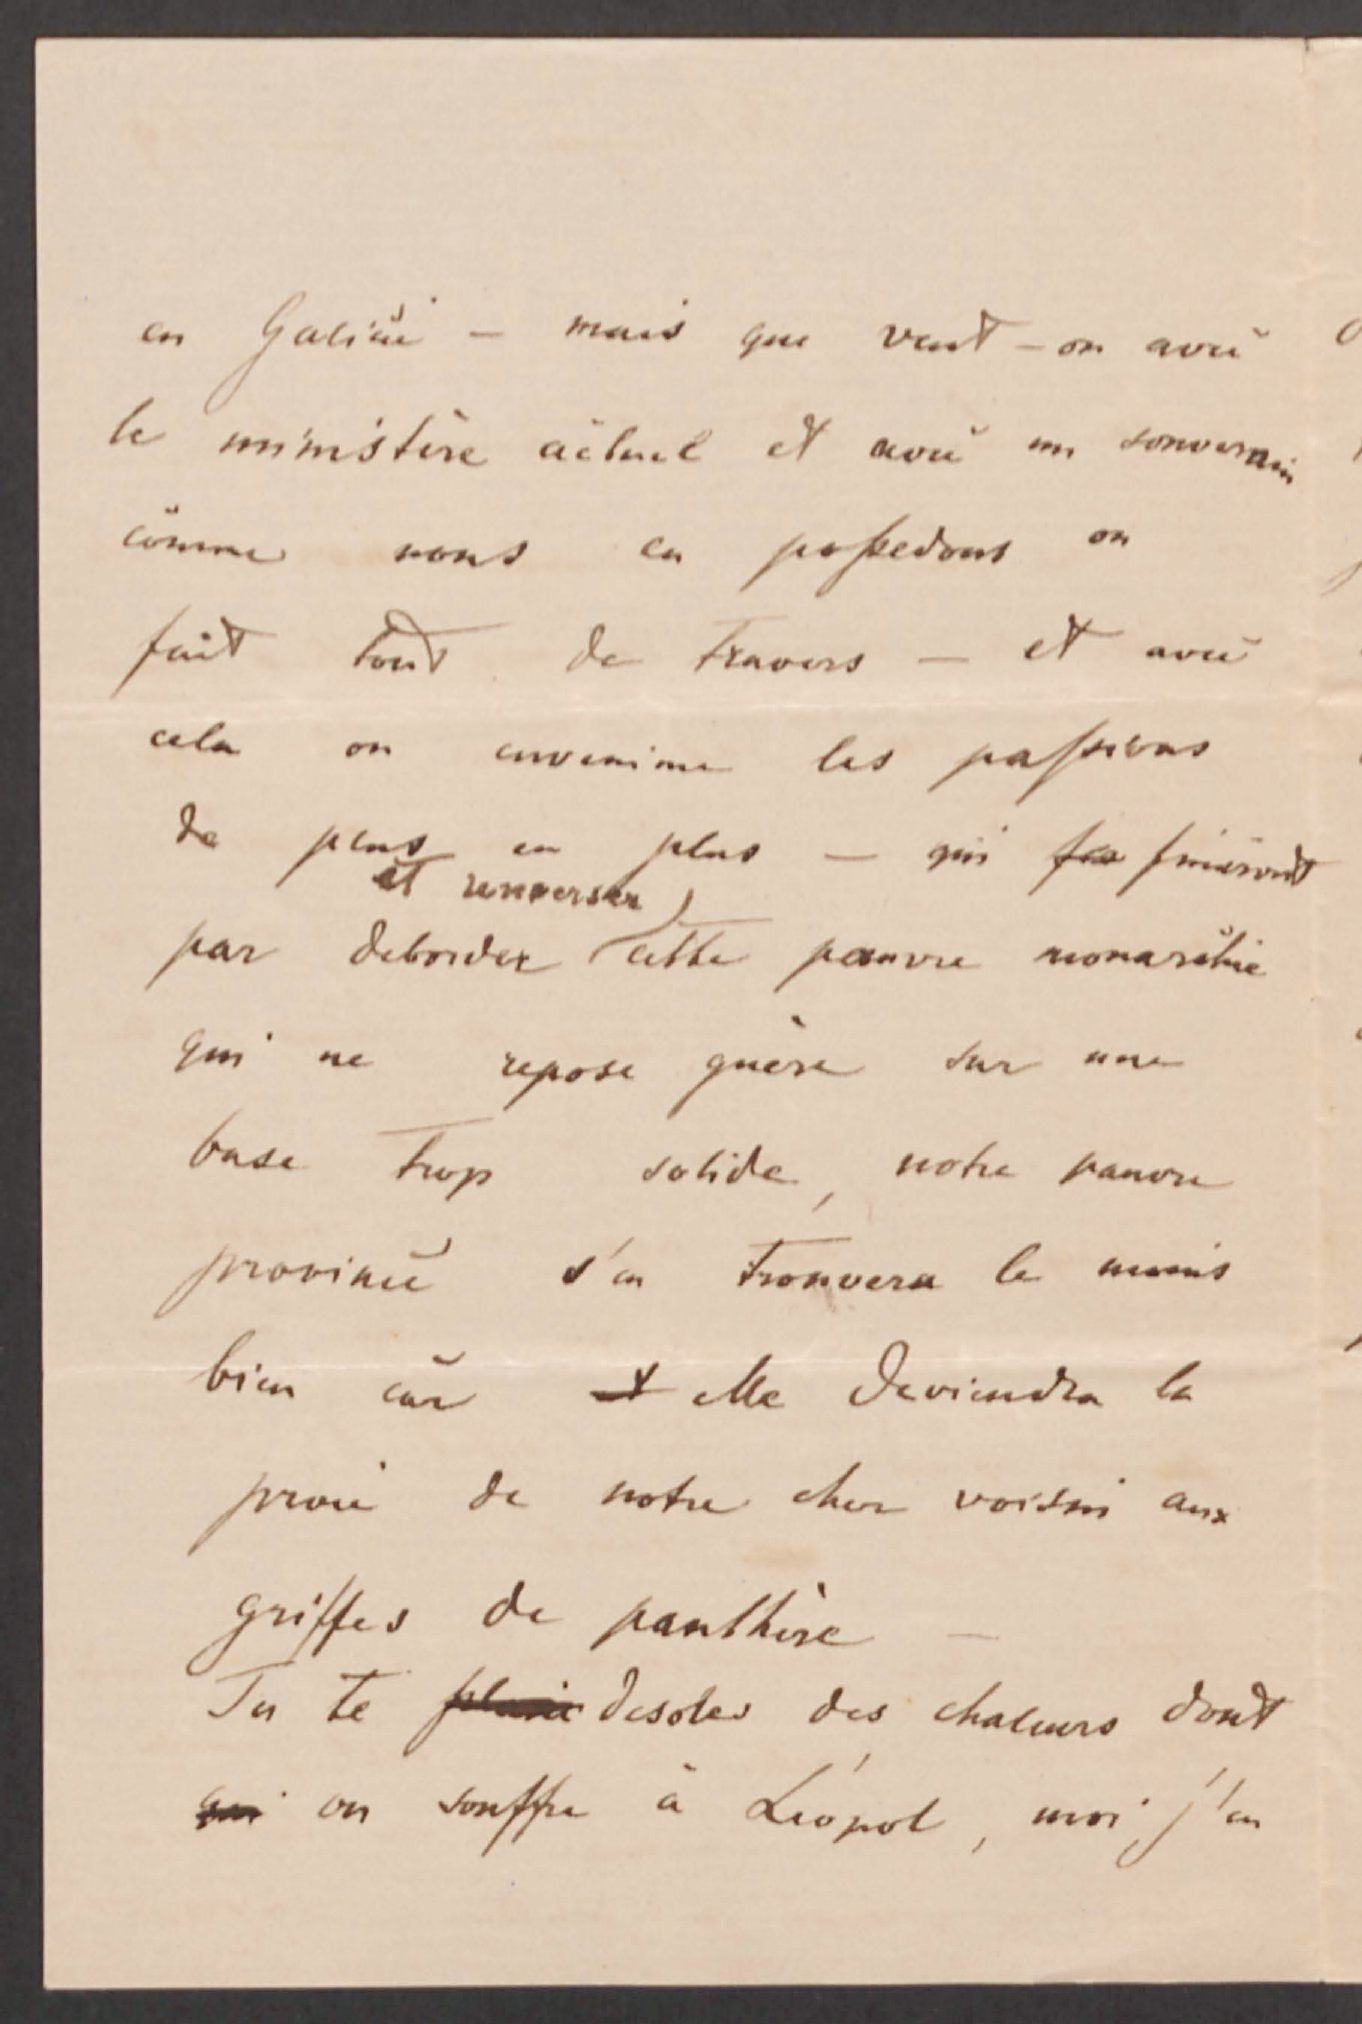 en Galicie – mais que veut-on avec
le ministère actuel et avec un souverain
comme nous en possedons on
fait tout de travers – et avec
cela on envenime les passions
de plus en plus – qui fin finiront
et renverser
par deborder cette pauvre monarchie
qui ne repose guère sur une
base trop solide, notre pauvre
province s'en trouvera le moins
bien car et elle deviendra la
proie de notre cher voisin aux
griffes de panthère –
Tu te desoles des chaleurs dont
qui on souffre à Léopol, moi j'en